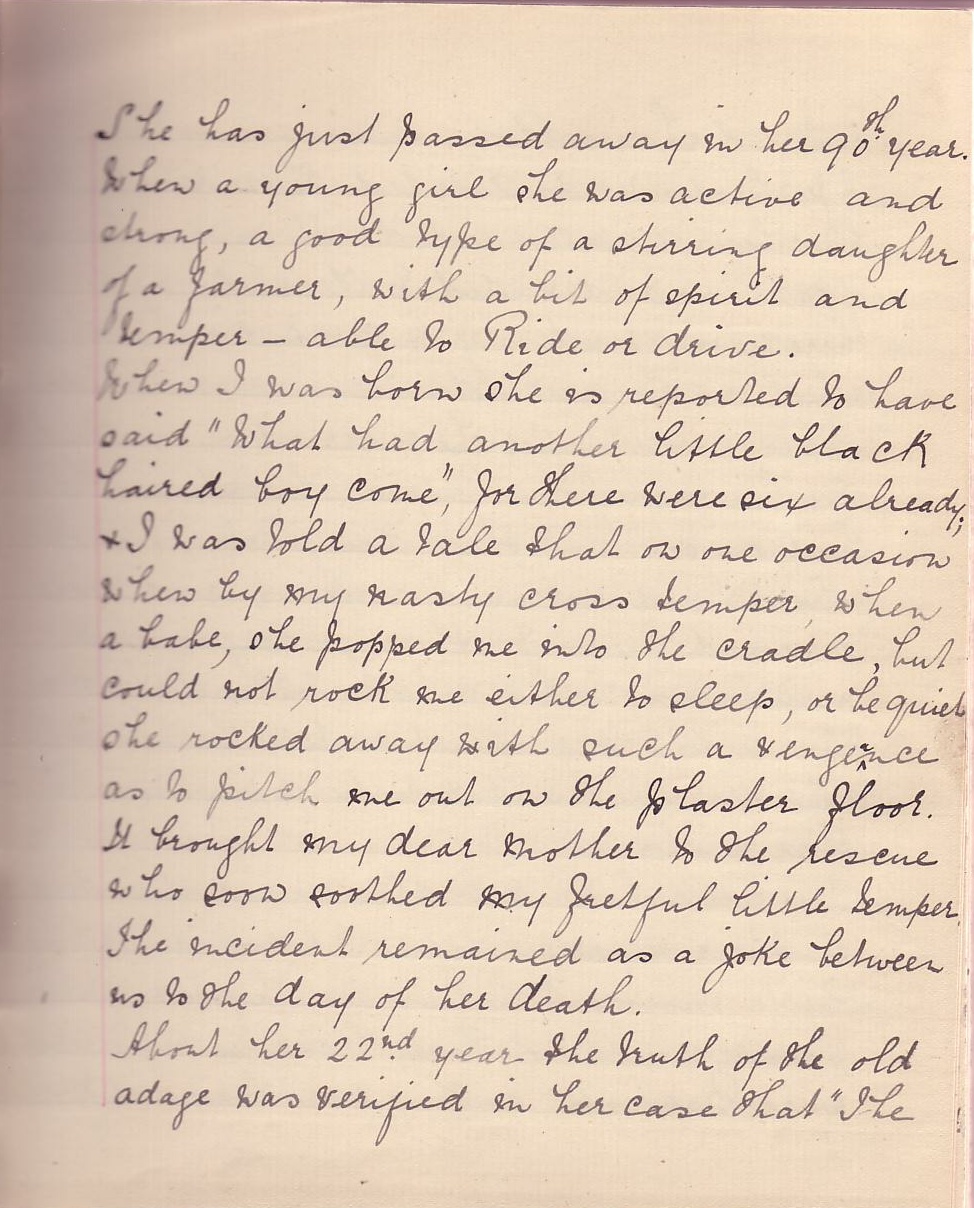 She has just passed away in her 90th year.
When a young girl she was active and
strong, a good type of a stirring daughter
of a farmer, with a bit of spirit and
temper – able to Ride or drive.
When I was born she is reported to have
said "What had another little black
haired boy come", for there were six already;
& I was told a tale that on one occasion
when by my nasty cross temper, when
a babe, she popped me into the cradle, but
could not rock me either to sleep, or be quiet
she rocked away with such a vengeance
as to pitch me out on the plaster floor.
It brought my dear mother to the rescue
who soon soothed my fretful little temper.
The incident remained as a joke between
us to the day of her death.
About her 22nd year the truth of the old
adage was verified in her case that "The